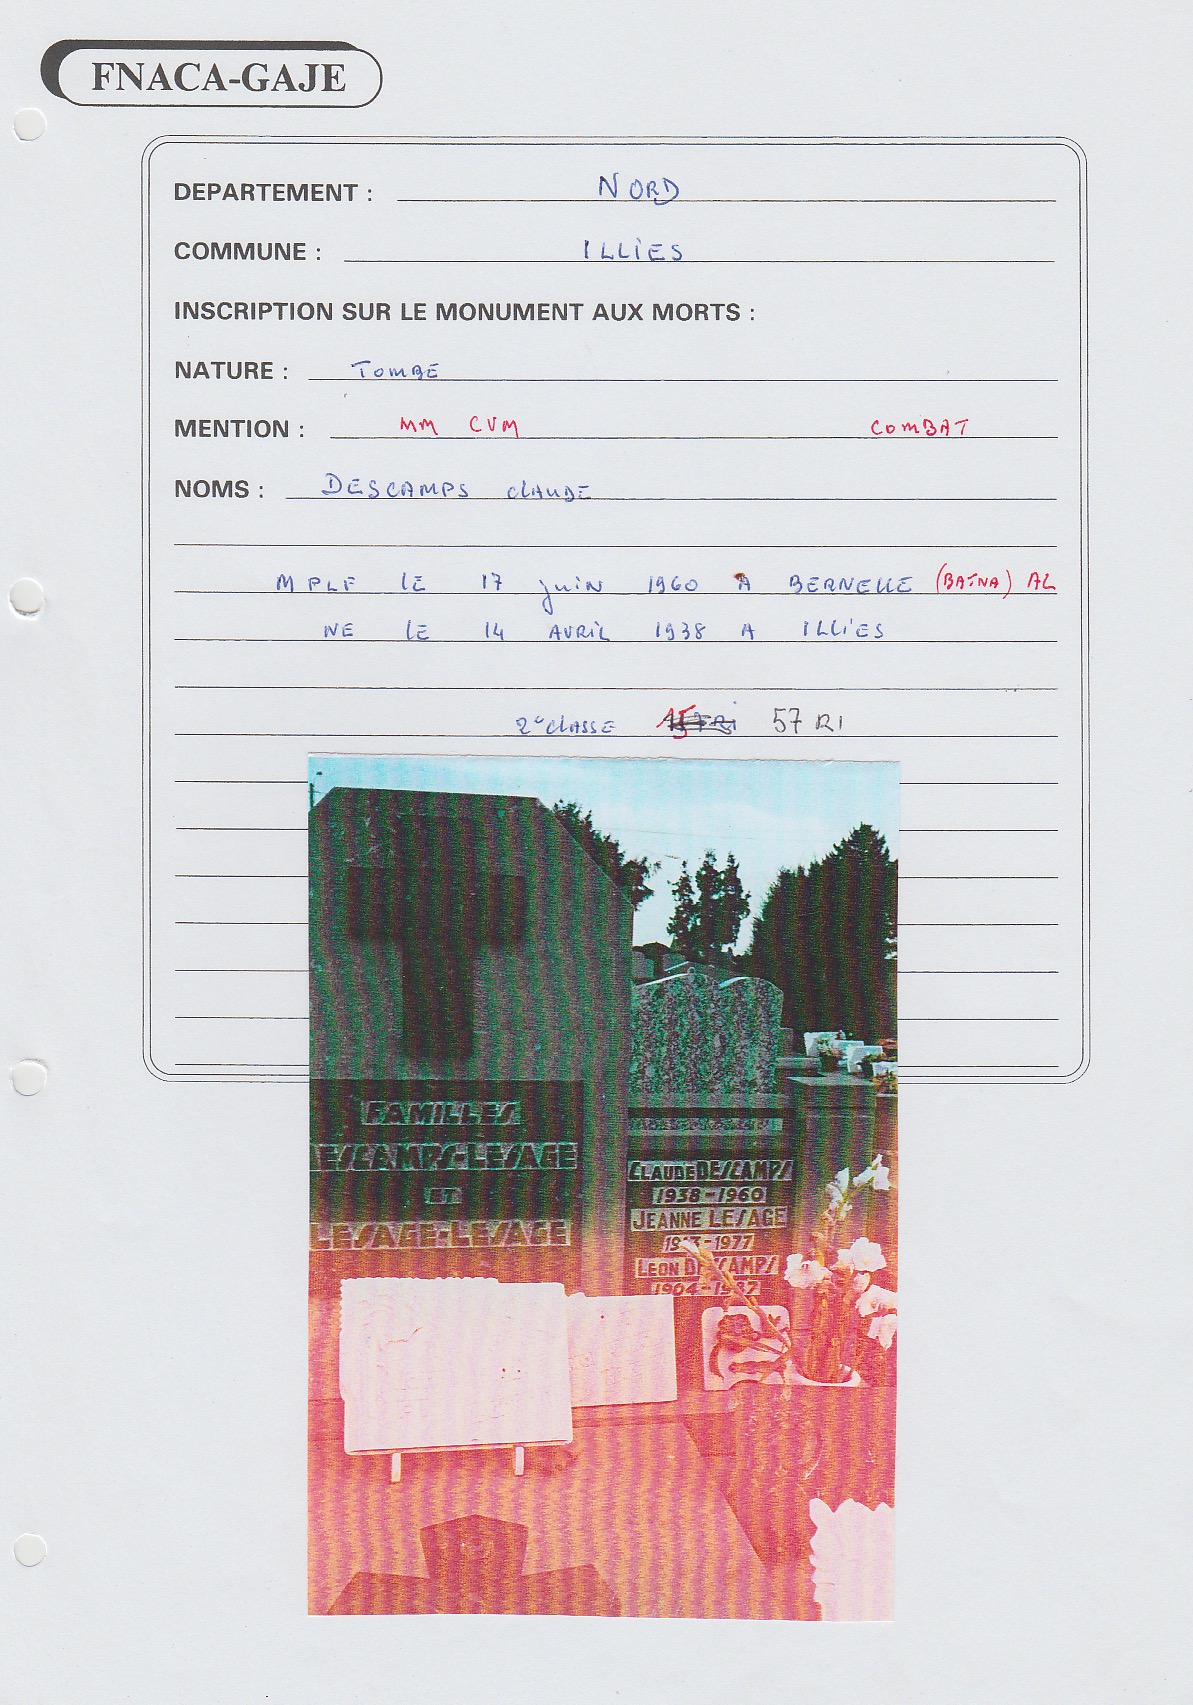 FNACA-GAJE
DEPARTEMENT : NORD
COMMUNE : ILLIES
INSCRIPTION SUR LE MONUMENT AUX MORTS :
NATURE : TOMBE
MENTION : MM CVM COMBAT
NOMS : DESCAMPS CLAUDE
M PLF LE 17 juin 1960 A BERNELLE (BATNA) AL
NE LE 14 AVRIL 1938 A ILLIES
2e CLASSE 57 RI
FAMILLES
DESCAMPS-LESAGE
ET
LESAGE-LESAGE
CLAUDE DESCAMPS
1938-1960
JEANNE LESAGE
1913-1977
LEON DESCAMPS
1904-1987